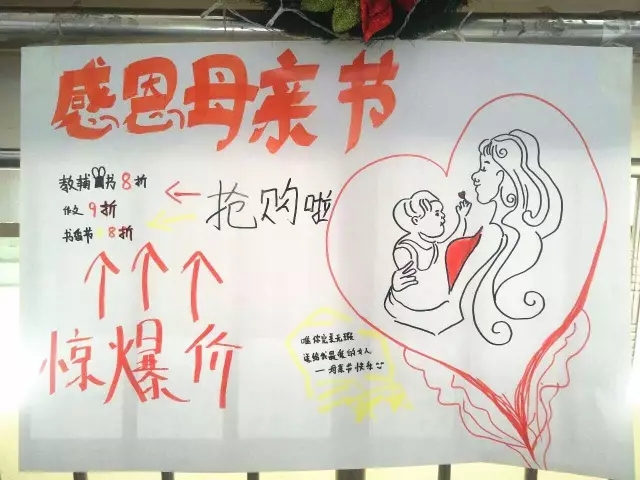 感恩母亲节
教辅书 8折
作文 9折
书香节 8折
抢购啦
惊爆价
唯你完美无瑕
送给我最爱的女人
—母亲节快乐